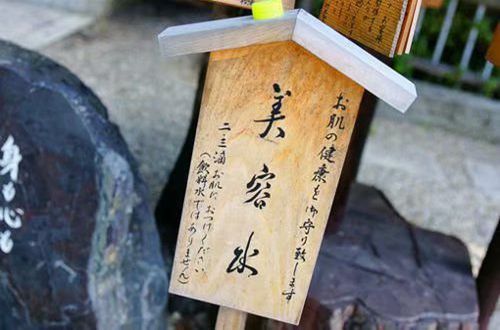 お肌の健康を御守り致します
美容水
二三滴お肌におつけください
(飲料水ではありません)
身も心も